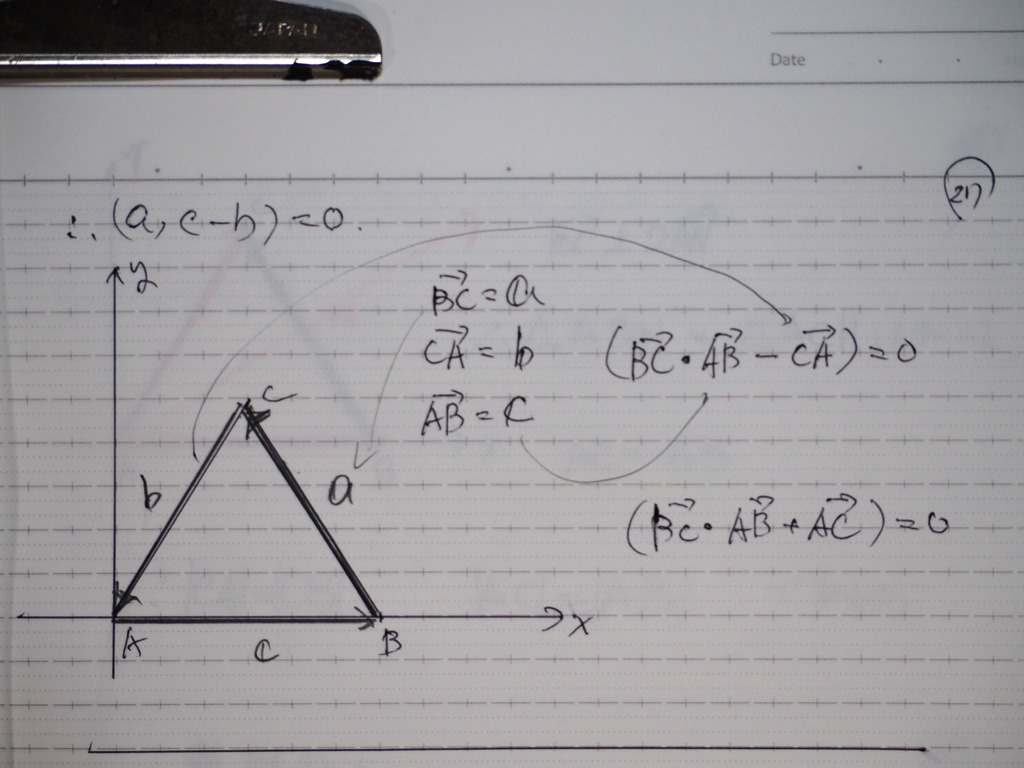 JAPAN
Date
217
∴ (a, c-b) = 0.
y
BC→ = a
CA→ = b (BC→ · AB→ - CA→) = 0
C
AB→ = c
b a
(BC→ · AB→ + AC→) = 0
x
A c B